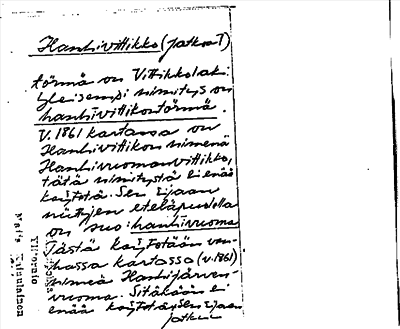 Hanhivittikko (jatkoa 1)
törmä on Vittikkolak.
Yleisempi nimitys on
hanhivittikontörmä.
V. 1861 kartassa on
Hanhivittikon nimenä
Hanhivuomanvittikko,
tätä nimitystä ei enää
käytetä. Sen sijaan
niittyjen eteläpuolella
on suo: hanhivuoma
Tästä käytetään van-
hassa kartassa (v. 1861)
nimeä Hanhijärven-
vuoma. Sitäkään ei
enää käytetä, sen sijaan
jatkuu
Ylitornio